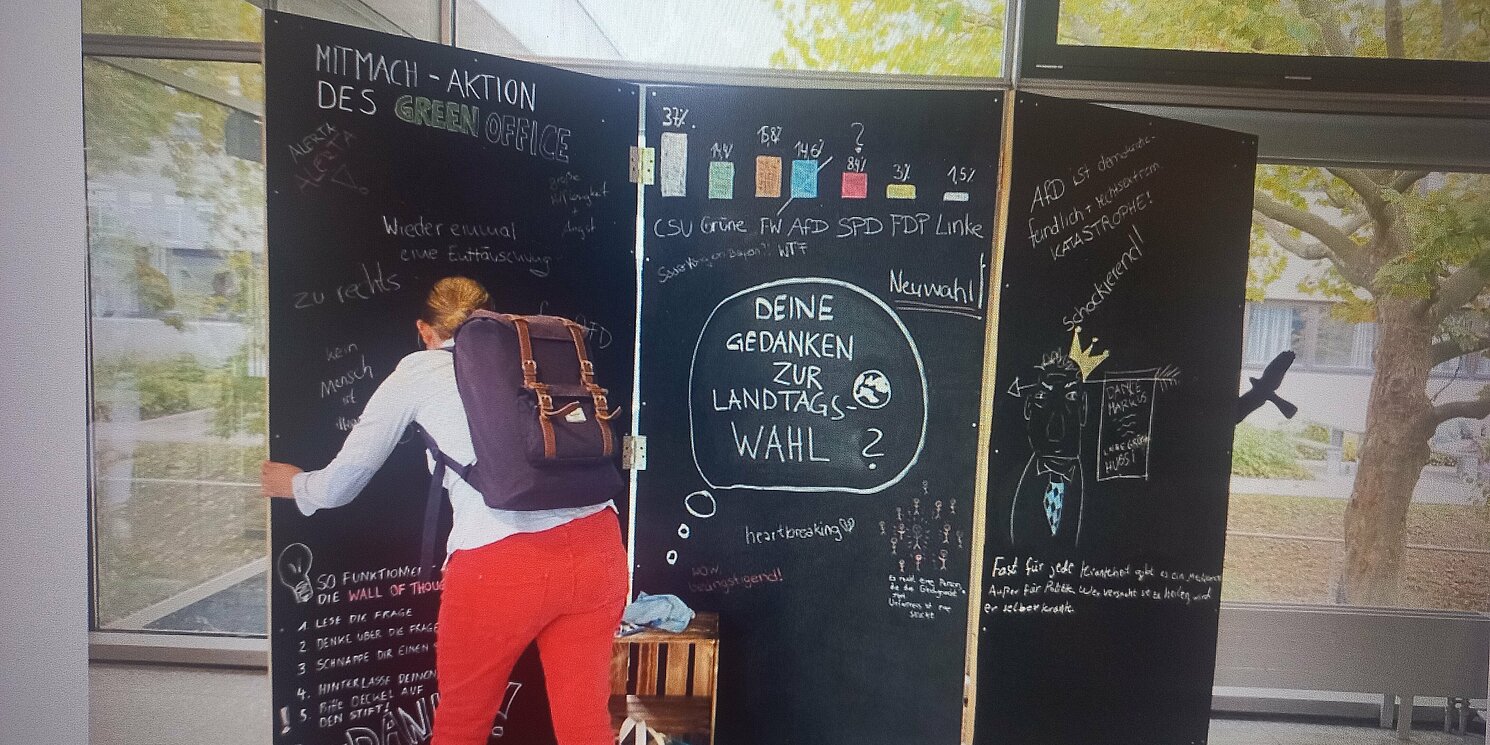 MITMACH-AKTION
DES GREEN OFFICE
ALERTA
ALERTA
große
Angst
Wieder einmal
eine Enttäuschung
zu rechts
AfD
kein
Mensch
ist
SO FUNKTIONIE
DIE WALL OF THOU
1 LESE DIE FRAGE
2 DENKE ÜBER DIE FRAGE
3 SCHNAPPE DIR EINEN
4. HINTERLASSE DEINEN
5. BITTE DECKEL AUF
DEN STIFT!
DANKE!
37%
14,4%
15,8%
14,6%
?
8,4%
3%
1,5%
CSU Grüne FW AfD SPD FDP Linke
Söder König von Bayern?! WTF
Neuwahl!
DEINE
GEDANKEN
ZUR
LANDTAGS-
WAHL ?
heartbreaking
WOW
beängstigend!
Es reicht eine Person,
die das
AfD ist demokratie-
feindlich + rechtsextrem
KATASTROPHE!
Schockierend!
DANCE
MARKUS
Fast für jede Krankheit gibt es ein
Außer für Politik. Wer versucht sie zu heilen wird
er selber krank.